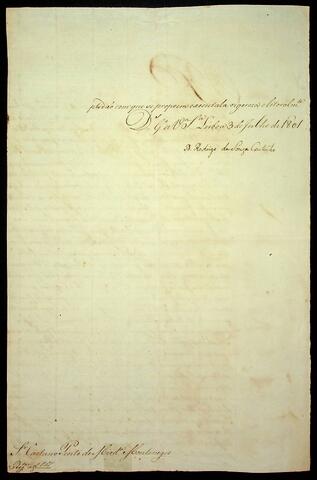 ptidão com que se propoem executala rigoroza e literalmte
Ds Gde a V. Sa Lisboa 3 de Julho de 1801
D. Rodrigo de Souza Coutinho
Sr Caetano Pinto de Mirda Montenegro